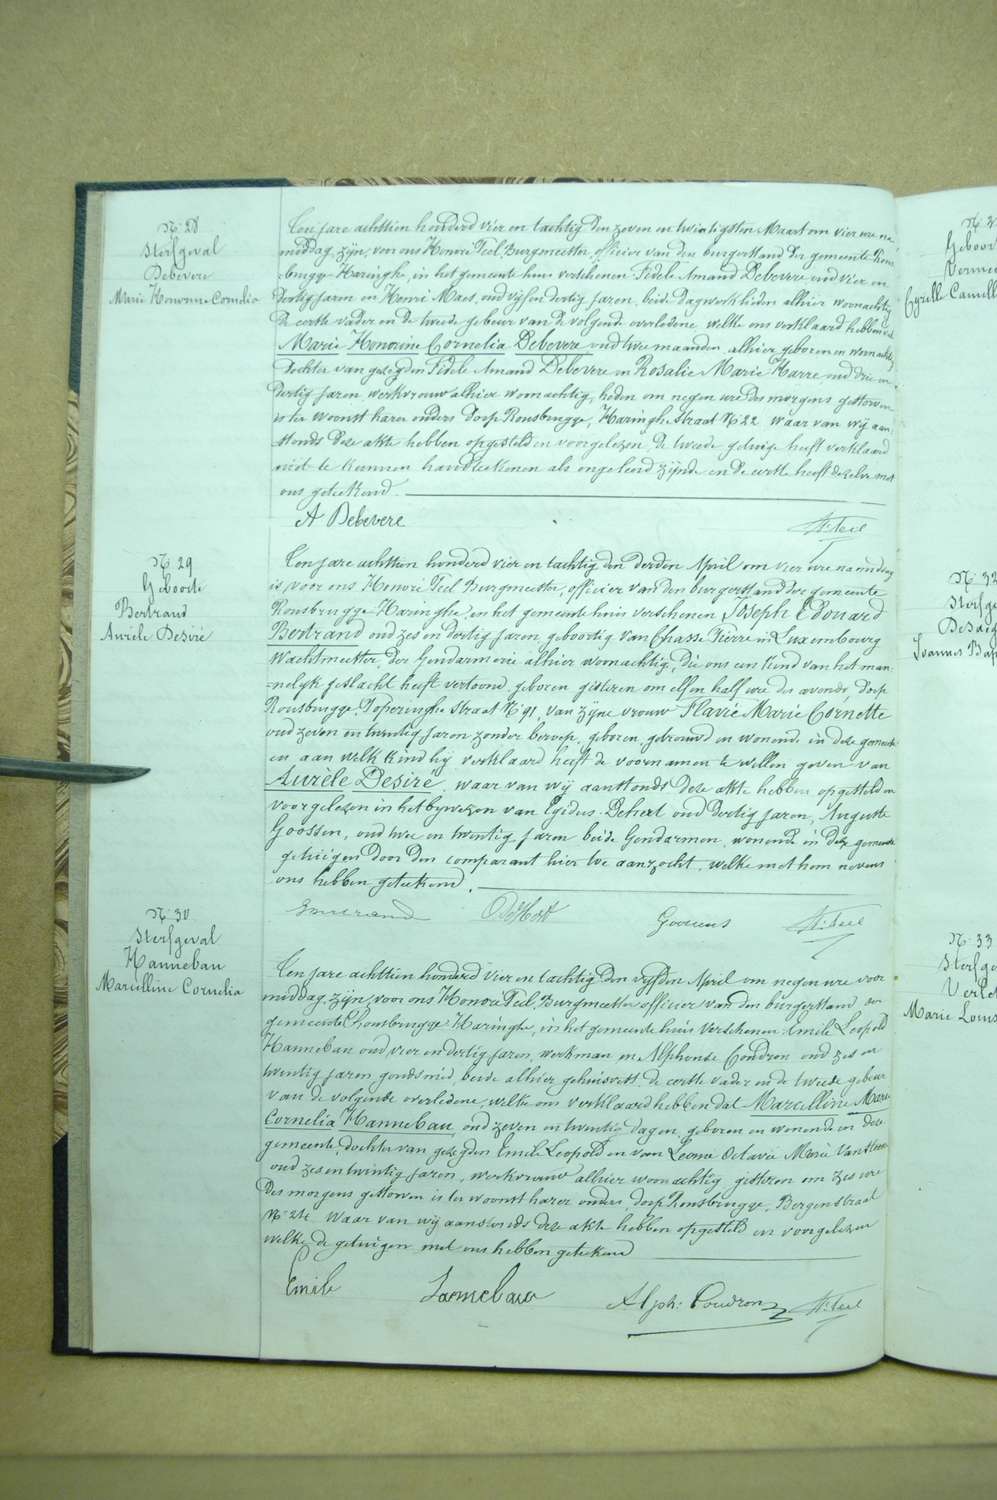 N: 28
Sterfgeval
Debevere
Marie Honorine Cornelia
Ten jare achttien honderd vier en tachtig den zeven en twintigsten Maart om vier ure na
middag zijn, voor ons Honoré Teel, Burgmeester, officier van den burgerstand der gemeente Rous
brugge-Haringhe, in het gemeente huis verschenen Fidele Amand Debevere oud vier en
dertig jaren en Henri Maes, oud vijf en dertig jaren, beide dagwerklieden alhier woonachtig
de eerste vader en de tweede gebuur van de volgende overledene welke ons verklaard hebben dat
Marie Honorine Cornelia Debevere oud twee maanden alhier geboren en woonachtig
dochter van gezegden Fidele Amand Debevere en Rosalie Marie Harre oud drie en
dertig jaren werkvrouw alhier woonachtig, heden om negen ure des morgens gestorven
is ter woonst harer ouders dorp Rousbrugge, Haringhestraat N: 22 waar van wij aan
stonds deze akte hebben opgesteld en voorgelezen de tweede getuige heeft verklaard
niet te kunnen handteekenen als ongeleerd zijnde en de eerste heeft dezelve met
ons geteekend.
A Debevere
H: Teel
N: 29
Geboorte
Bertrand
Aurèle Desiré
Ten jare achttien honderd vier en tachtig den derden April om vier ure na middag
is voor ons Honoré Teel Burgmeester, officier van den burgerstand der gemeente
Rousbrugge-Haringhe, en het gemeente huis verschenen Joseph Edouard
Bertrand oud zes en dertig jaren, geboortig van Chasse Pierre in Luxembourg
Wachtmeester der Gendarmerie alhier woonachtig, die ons een kind van het man-
-nelijk geslacht heeft vertoond, geboren gisteren om elf en half ure des avonds, dorp
Rousbrugge, Poperinghe straat N: 91, van zijne vrouw Flavie Marie Cornette
oud zeven en twintig jaren zonder beroep, geboren, getrouwd en wonende in deze gemeente
en aan welk kind hij verklaard heeft de voornamen te willen geven van
Aurèle Desiré, waar van wij aanstonds deze akte hebben opgesteld en
voorgelezen in het bijwezen van Egidius Dehert oud dertig jaren, Auguste
Goossen, oud twee en twintig jaren beide Gendarmen, wonende in deze gemeente
getuigen door den comparant hier toe aanzocht, welke met hem nevens
ons hebben geteekend.
Bertrand
Goossens
H: Teel
N: 30
Sterfgeval
Hannebau
Marcelline Cornelia
Ten jare achttien honderd vier en tachtig den vijfden April om negen ure voor
middag zijn voor ons Honoré Teel, Burgmeester officier van den burgerstand der
gemeente Rousbrugge Haringhe, in het gemeente huis verschenen Emile Leopold
Hannebau oud vier en dertig jaren, werkman en Alphonse Coudron oud zes en
twintig jaren goudsmid, beide alhier gehuisvest de eerste vader en de tweede gebuur
van de volgende overledene, welke ons verklaard hebben dat Marcelline Marie
Cornelia Hannebau, oud zeven en twintig dagen, geboren en wonende in deze
gemeente, dochter van gezegden Emile Leopold en van Leonie Octavie Marie
oud zes en twintig jaren, werkvrouw alhier woonachtig gisteren om zes ure
des morgens gestorven is ter woonst harer ouders, dorp Rousbrugge, Bergenstraat
Waar van wij aanstonds deze akte hebben opgesteld en voorgelezen
welke de getuigen met ons hebben geteekend
Emile Hannebau
Alph: Coudron
H: Teel
Geboor
Cyrille Camill
N: 32
Sterfge
Joannes Bap
N: 33
Sterfge
Marie Louis